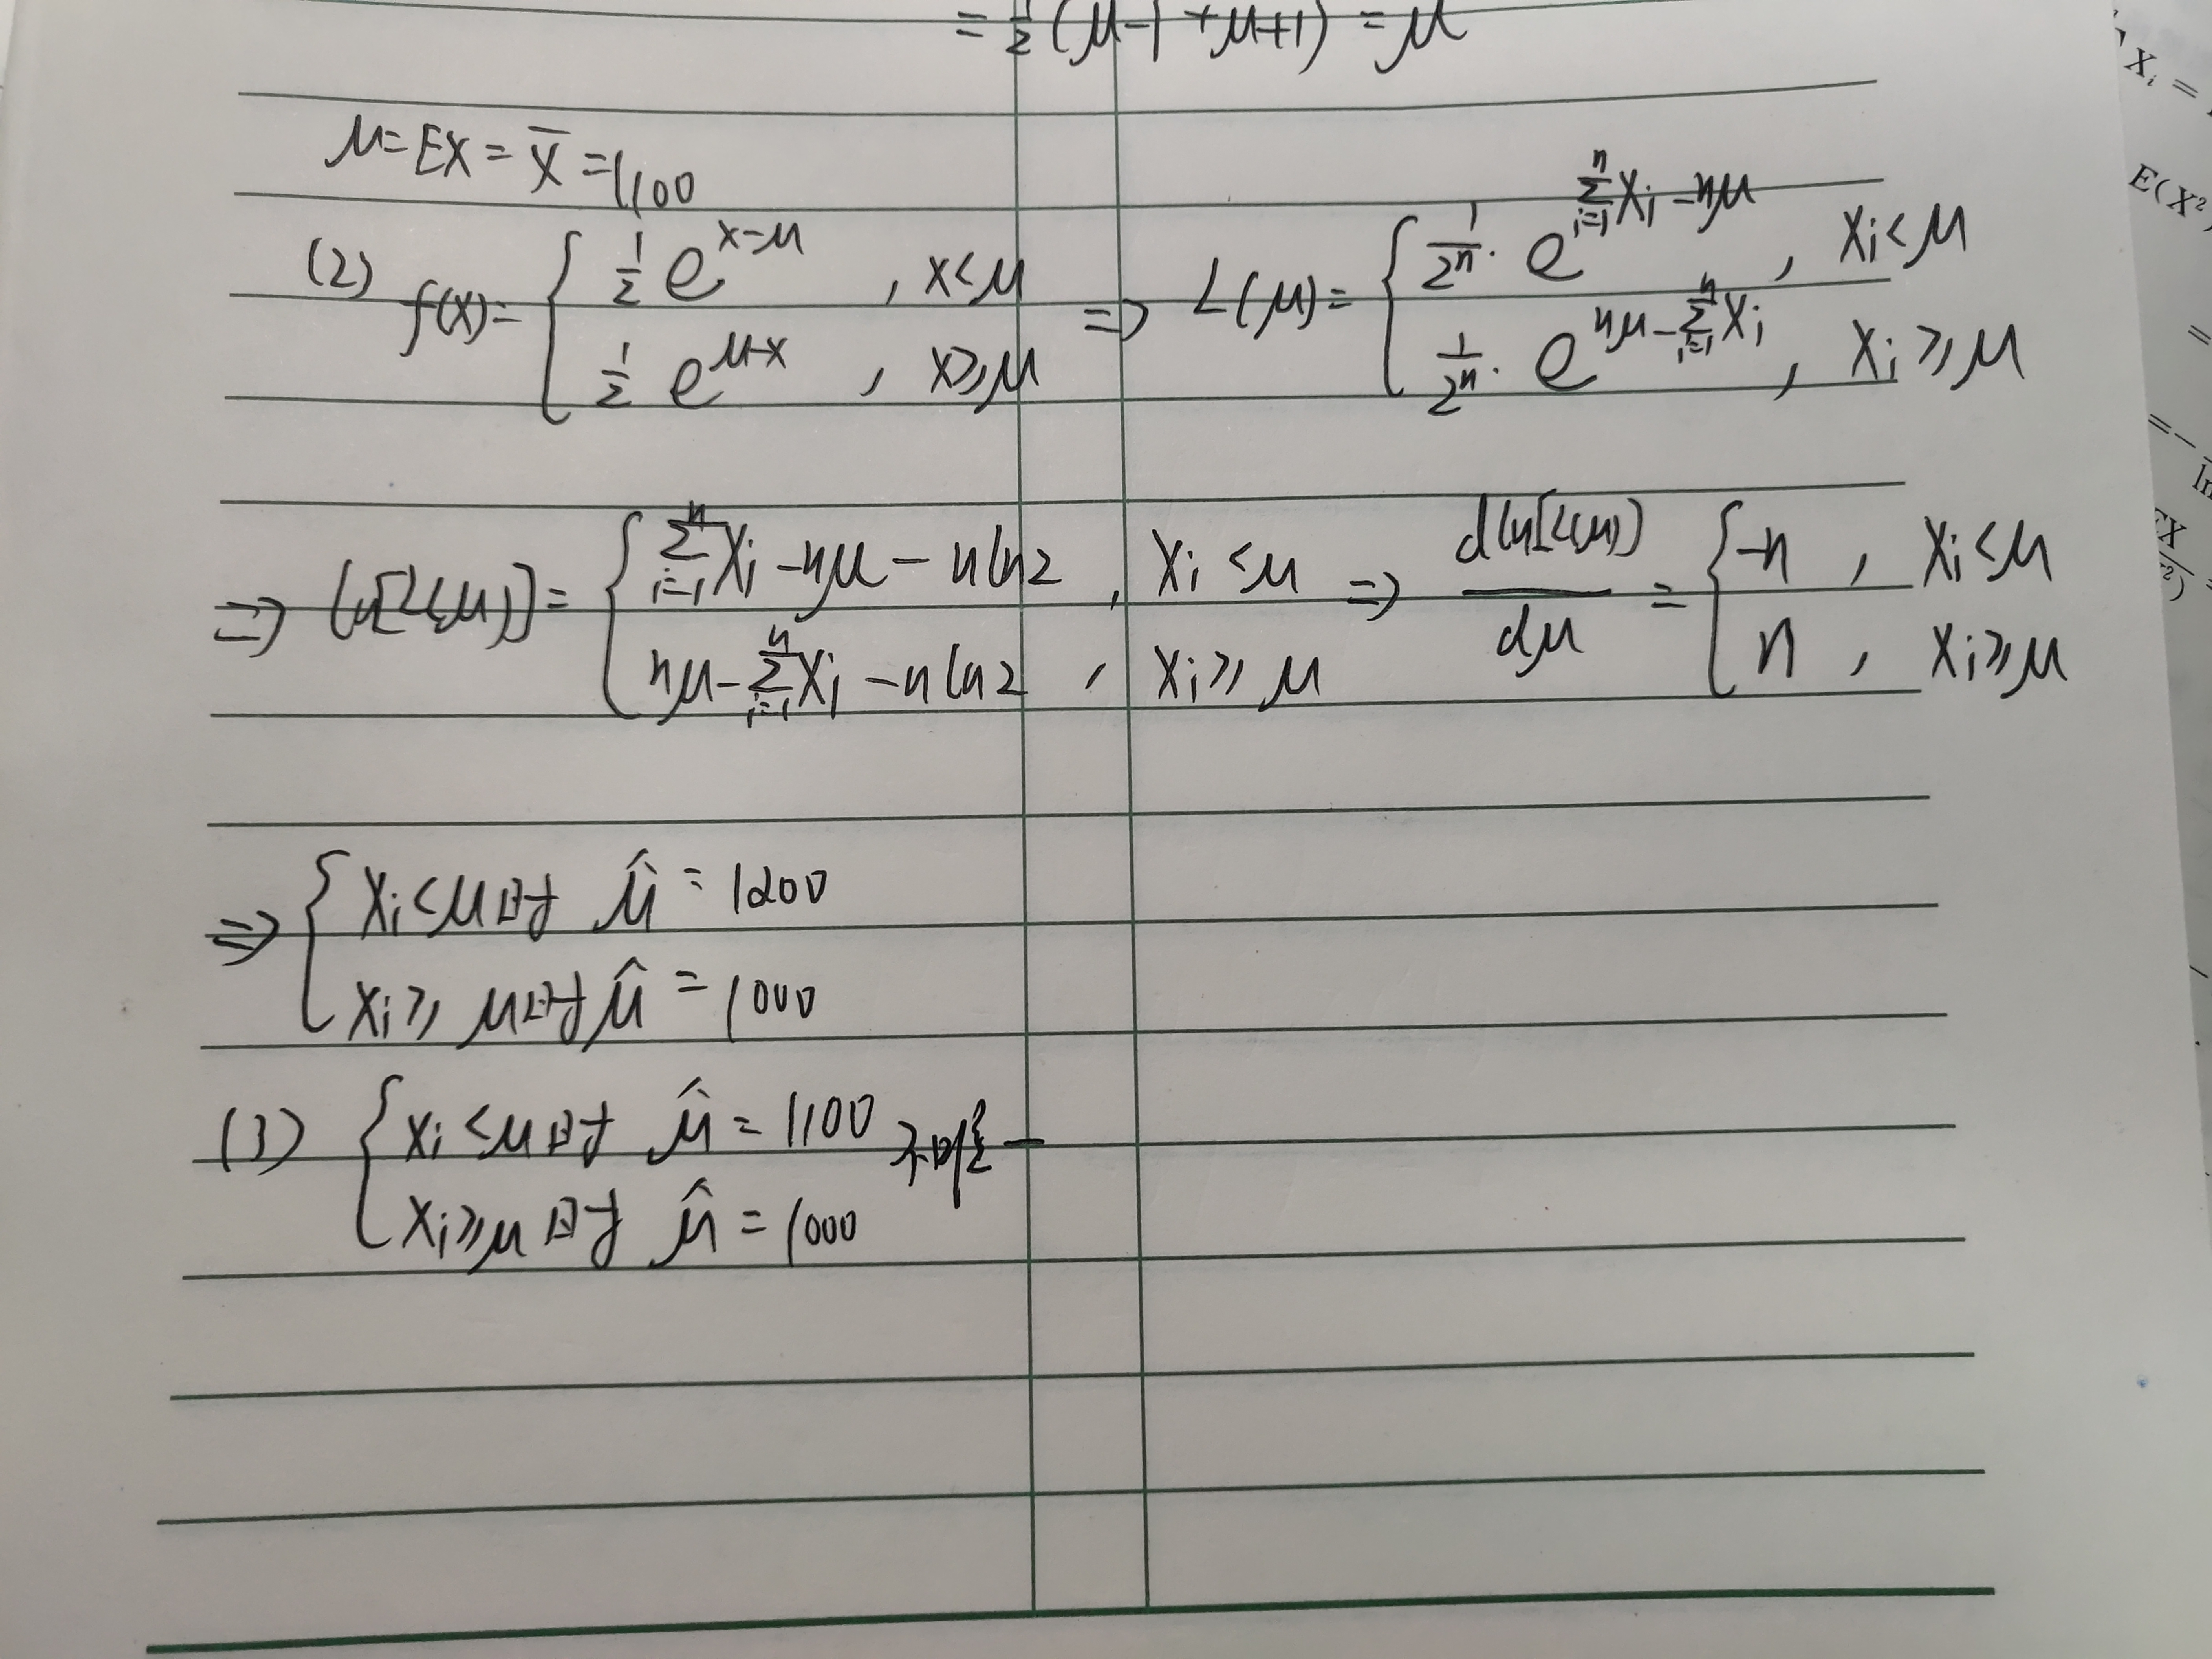 = 1/2 (μ-1+μ+1) = μ
μ = EX = X̄ = 1100
(2) f(x) = { 1/2 e^{x-μ} , x<μ ; 1/2 e^{μ-x} , x≥μ } ⇒ L(μ) = { 1/2^n · e^{∑_{i=1}^{n} Xi - nμ} , Xi<μ ; 1/2^n · e^{nμ - ∑_{i=1}^{n} Xi} , Xi≥μ }
⇒ ln[L(μ)] = { ∑_{i=1}^{n} Xi - nμ - nln2 , Xi<μ ; nμ - ∑_{i=1}^{n} Xi - nln2 , Xi≥μ } ⇒ dln[L(μ)]/dμ = { -n , Xi<μ ; n , Xi≥μ }
⇒ { Xi<μ时 μ̂ = 1200
Xi≥μ时 μ̂ = 1000
(3) { Xi<μ时 μ̂ = 1100 不唯一
Xi≥μ时 μ̂ = 1000
Xi =
E(X²
=
=-
ln